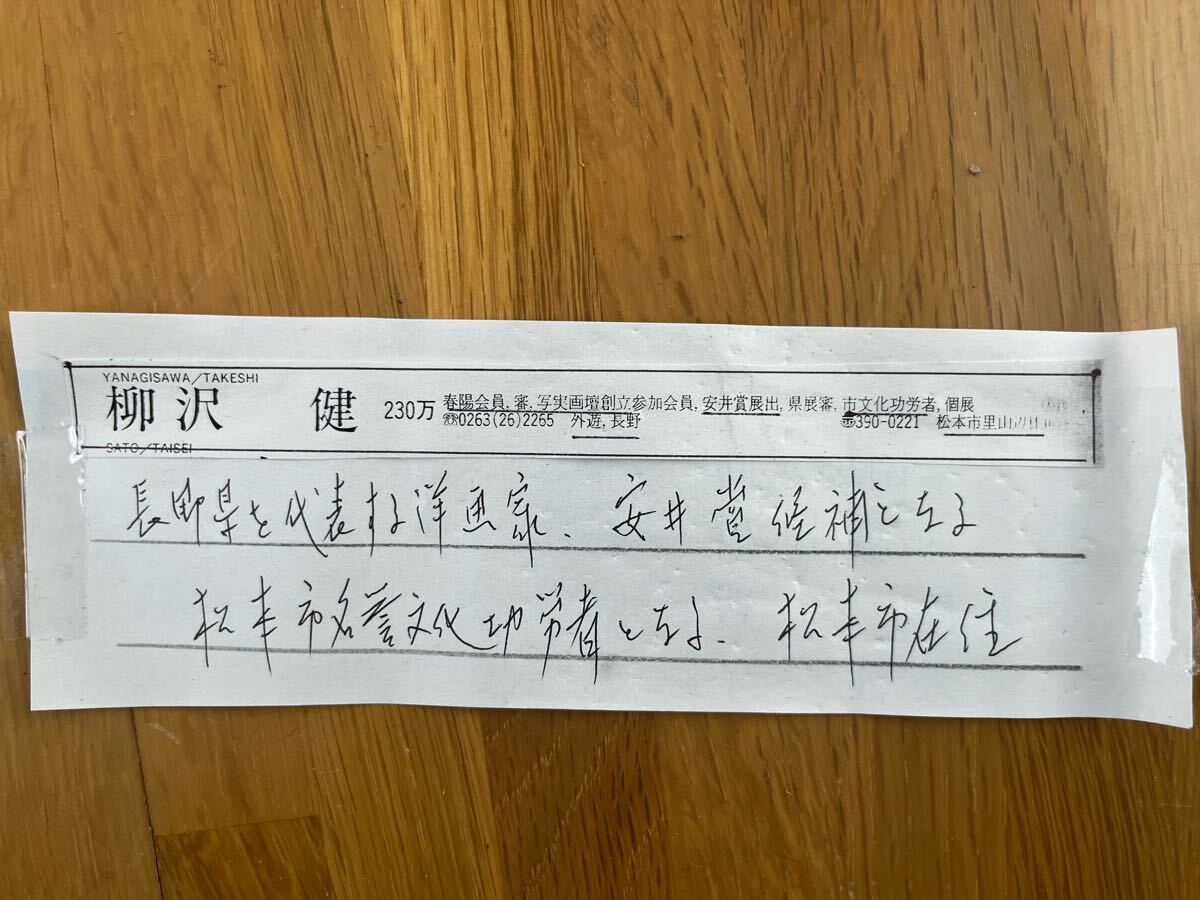 YANAGISAWA/TAKESHI
柳沢 健 230万 春陽会員, 審, 写実画壇創立参加会員, 安井賞展出, 県展審, 市文化功労者, 個展
☎0263(26)2265 外遊, 長野 〠390-0221 松本市里山
SATO/TAISEI
長野県を代表する洋画家、安井賞候補となる
松本市名誉文化功労者となる、松本市在住